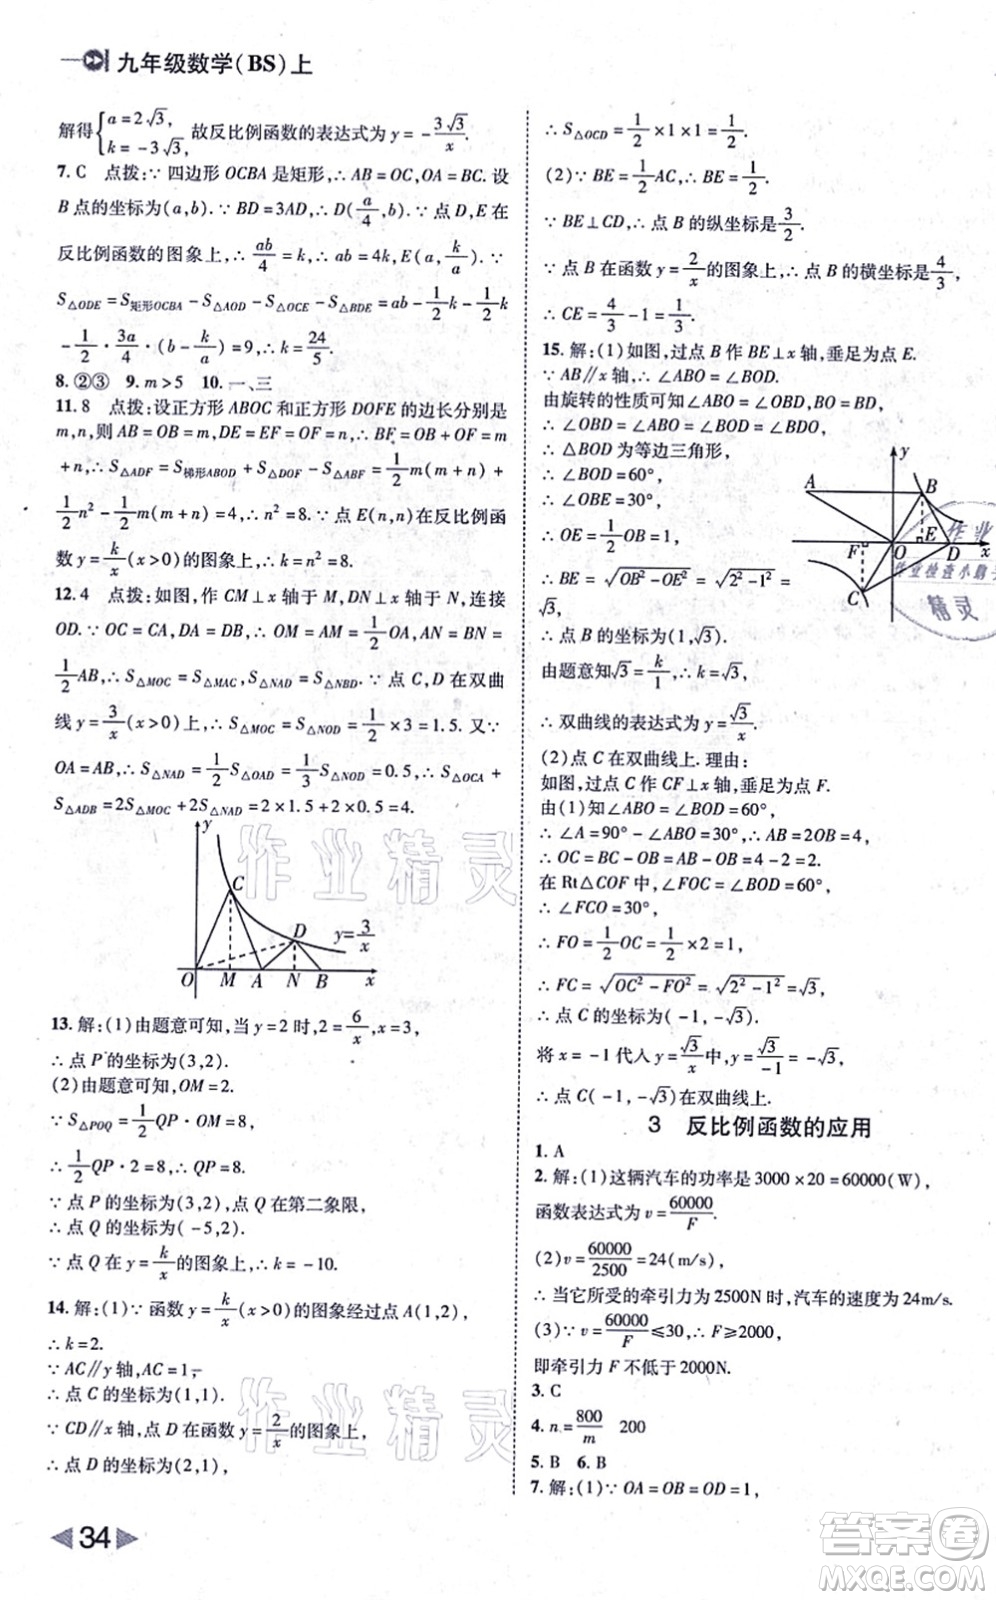 九年级数学(BS)上
解得{a=2√3, k=-3√3, 故反比例函数的表达式为 y=-3√3/x.
7. C 点拨:∵四边形 OCBA 是矩形,∴AB=OC,OA=BC. 设
B 点的坐标为(a,b). ∵BD=3AD,∴D(a/4,b). ∵点 D,E 在
反比例函数的图象上,∴ab/4=k,∴ab=4k,E(a,k/a). ∵
S△ODE=S矩形OCBA-S△AOD-S△OCE-S△BDE=ab-1/2k-1/2k
-1/2·3a/4·(b-k/a)=9,∴k=24/5.
8. ②③ 9. m>5 10. 一、三
11. 8 点拨:设正方形 ABOC 和正方形 DOFE 的边长分别是
m,n,则 AB=OB=m,DE=EF=OF=n,∴BF=OB+OF=m
+n,∴S△ADF=S梯形ABOD+S△DOF-S△ABF=1/2m(m+n)+
1/2n²-1/2m(m+n)=4,∴n²=8. ∵点 E(n,n)在反比例函
数 y=k/x(x>0)的图象上,∴k=n²=8.
12. 4 点拨:如图,作 CM⊥x 轴于 M,DN⊥x 轴于 N,连接
OD. ∵OC=CA,DA=DB,∴OM=AM=1/2OA,AN=BN=
1/2AB,∴S△MOC=S△MAC,S△NAD=S△NBD. ∵点 C,D 在双曲
线 y=3/x(x>0)上,∴S△MOC=S△NOD=1/2×3=1.5. 又∵
OA=AB,∴S△NAD=1/2S△OAD=1/3S△NOD=0.5,∴S△OCA+
S△ADB=2S△MOC+2S△NAD=2×1.5+2×0.5=4.
y
C
D
y=3/x
O M A N B x
13. 解:(1)由题意可知,当 y=2 时,2=6/x,x=3,
∴点 P 的坐标为(3,2).
(2)由题意可知,OM=2.
∵S△POQ=1/2QP·OM=8,
∴1/2QP·2=8,∴QP=8.
∵点 P 的坐标为(3,2),点 Q 在第二象限,
∴点 Q 的坐标为(-5,2).
∵点 Q 在 y=k/x的图象上,∴k=-10.
14. 解:(1)∵函数 y=k/x(x>0)的图象经过点 A(1,2),
∴k=2.
∵AC∥y 轴,AC=1,
∴点 C 的坐标为(1,1).
∵CD∥x 轴,点 D 在函数 y=2/x的图象上,
∴点 D 的坐标为(2,1),
34
∴S△OCD=1/2×1×1=1/2.
(2)∵BE=1/2AC,∴BE=1/2.
∵BE⊥CD,∴点 B 的纵坐标是3/2.
∵点 B 在函数 y=2/x的图象上,∴点 B 的横坐标是4/3,
∴CE=4/3-1=1/3.
15. 解:(1)如图,过点 B 作 BE⊥x 轴,垂足为点 E.
∵AB∥x 轴,∴∠ABO=∠BOD.
由旋转的性质可知∠ABO=∠OBD,BO=BD,
∴∠OBD=∠BOD,∠BOD=∠BDO,
∴△BOD 为等边三角形,
∴∠BOD=60°,
∴∠OBE=30°,
∴OE=1/2OB=1,
∴BE=√(OB²-OE²)=√(2²-1²)=
√3,
∴点 B 的坐标为(1,√3).
由题意知√3=k/1,∴k=√3,
∴双曲线的表达式为 y=√3/x.
y
A B
F O E D x
C
(2)点 C 在双曲线上. 理由:
如图,过点 C 作 CF⊥x 轴,垂足为点 F.
由(1)知∠ABO=∠BOD=60°,
∴∠A=90°-∠ABO=30°,∴AB=2OB=4,
∴OC=BC-BO=AB-BO=2.
在 Rt△COF 中,∠FOC=∠BOD=60°,
∴∠FCO=30°,
∴FO=1/2OC=1/2×2=1,
∴FC=√(OC²-FO²)=√(2²-1²)=√3,
∴点 C 的坐标为(-1,-√3).
将 x=-1 代入 y=√3/x中,y=√3/-1=-√3,
∴点 C(-1,-√3)在双曲线上.
3 反比例函数的应用
1. A
2. 解:(1)这辆汽车的功率是 3000×20=60000(W),
函数表达式为 v=60000/F.
(2)v=60000/2500=24(m/s),
∴当它所受的牵引力为 2500N 时,汽车的速度为 24m/s.
(3)∵v=60000/F≤30,∴F≥2000,
即牵引力 F 不低于 2000N.
3. C
4. n=800/m 200
5. B 6. B
7. 解:(1)∵OA=OB=OD=1,
作业精灵
作业精灵
作业
作业检查小帮手
精灵
答案圈
MXQE.COM